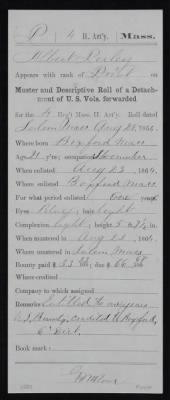 P | 4 H. Art'y. | Mass.
Albert Perley
Appears with rank of Pvt on
Muster and Descriptive Roll of a Detach-
ment of U. S. Vols. forwarded
for the 4 Reg't Mass. H'y Art'y. Roll dated
Salem Mass Aug 23, 1864.
Where born Boxford Mass
Age 21 y'rs; occupation Shoemaker
When enlisted Aug 23, 1864.
Where enlisted Boxford Mass
For what period enlisted one years
Eyes ; hair light
Complexion light; height 5 ft. in.
When mustered in Aug 23, 1864.
Where mustered in Salem Mass
Bounty paid $ 33 ; due $ 66
Where credited
Company to which assigned
Remarks: Entitled to
U.S. Bounty, credited to Boxford,
6" Dist.
Book mark: